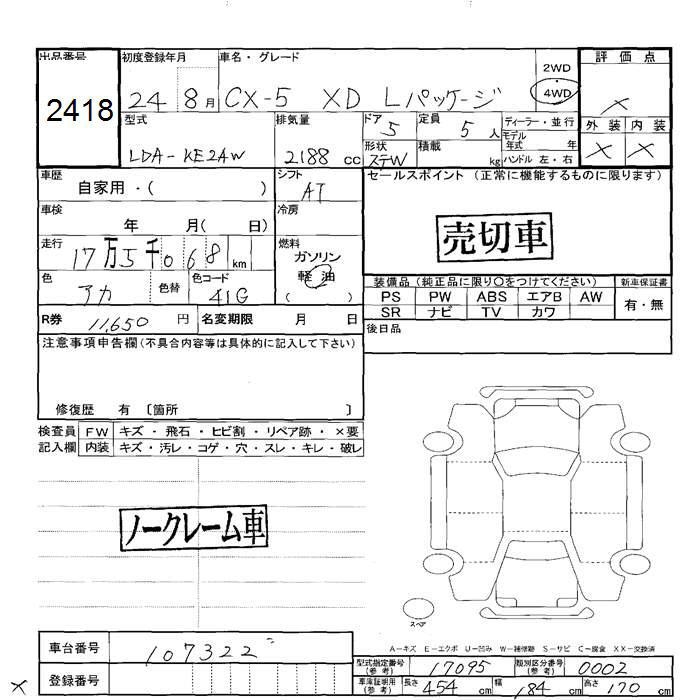 出品番号 初度登録年月 車名・グレード 2WD 評価点
2418 24 8月 CX-5 XD Lパッケージ 4WD ×
型式 排気量 ドア 定員 ディーラー・並行 外装 内装
LDA-KE2AW 2188 cc 5 5人 モデル年式 年 × ×
形状 積載 ハンドル 左・右
ステW kg
車歴 シフト セールスポイント(正常に機能するものに限ります)
自家用・( ) AT
車検 冷房
年 月( 日)
売切車
走行 燃料
17万5千068km ガソリン
軽油
( )
色 色替 色コード
アカ 41G
装備品(純正品に限り○をつけてください) 新車保証書
PS PW ABS エアB AW 有・無
SR ナビ TV カワ
R券 11,650 円 名変期限 月 日
後日品
注意事項申告欄(不具合内容等は具体的に記入して下さい)
修復歴 有 〔箇所 〕
検査員 FW キズ・飛石・ヒビ割・リペア跡・×要
記入欄 内装 キズ・汚レ・コゲ・穴・スレ・キレ・破レ
ノークレーム車
スペア
A-キズ E-エクボ U-凹み W-補修跡 S-サビ C-腐食 XX-交換済
車台番号 107322
型式指定番号(参考) 17095 類別区分番号(参考) 0002
登録番号
車庫証明用(参考) 長さ 454 cm 幅 184 cm 高さ 170 cm
×